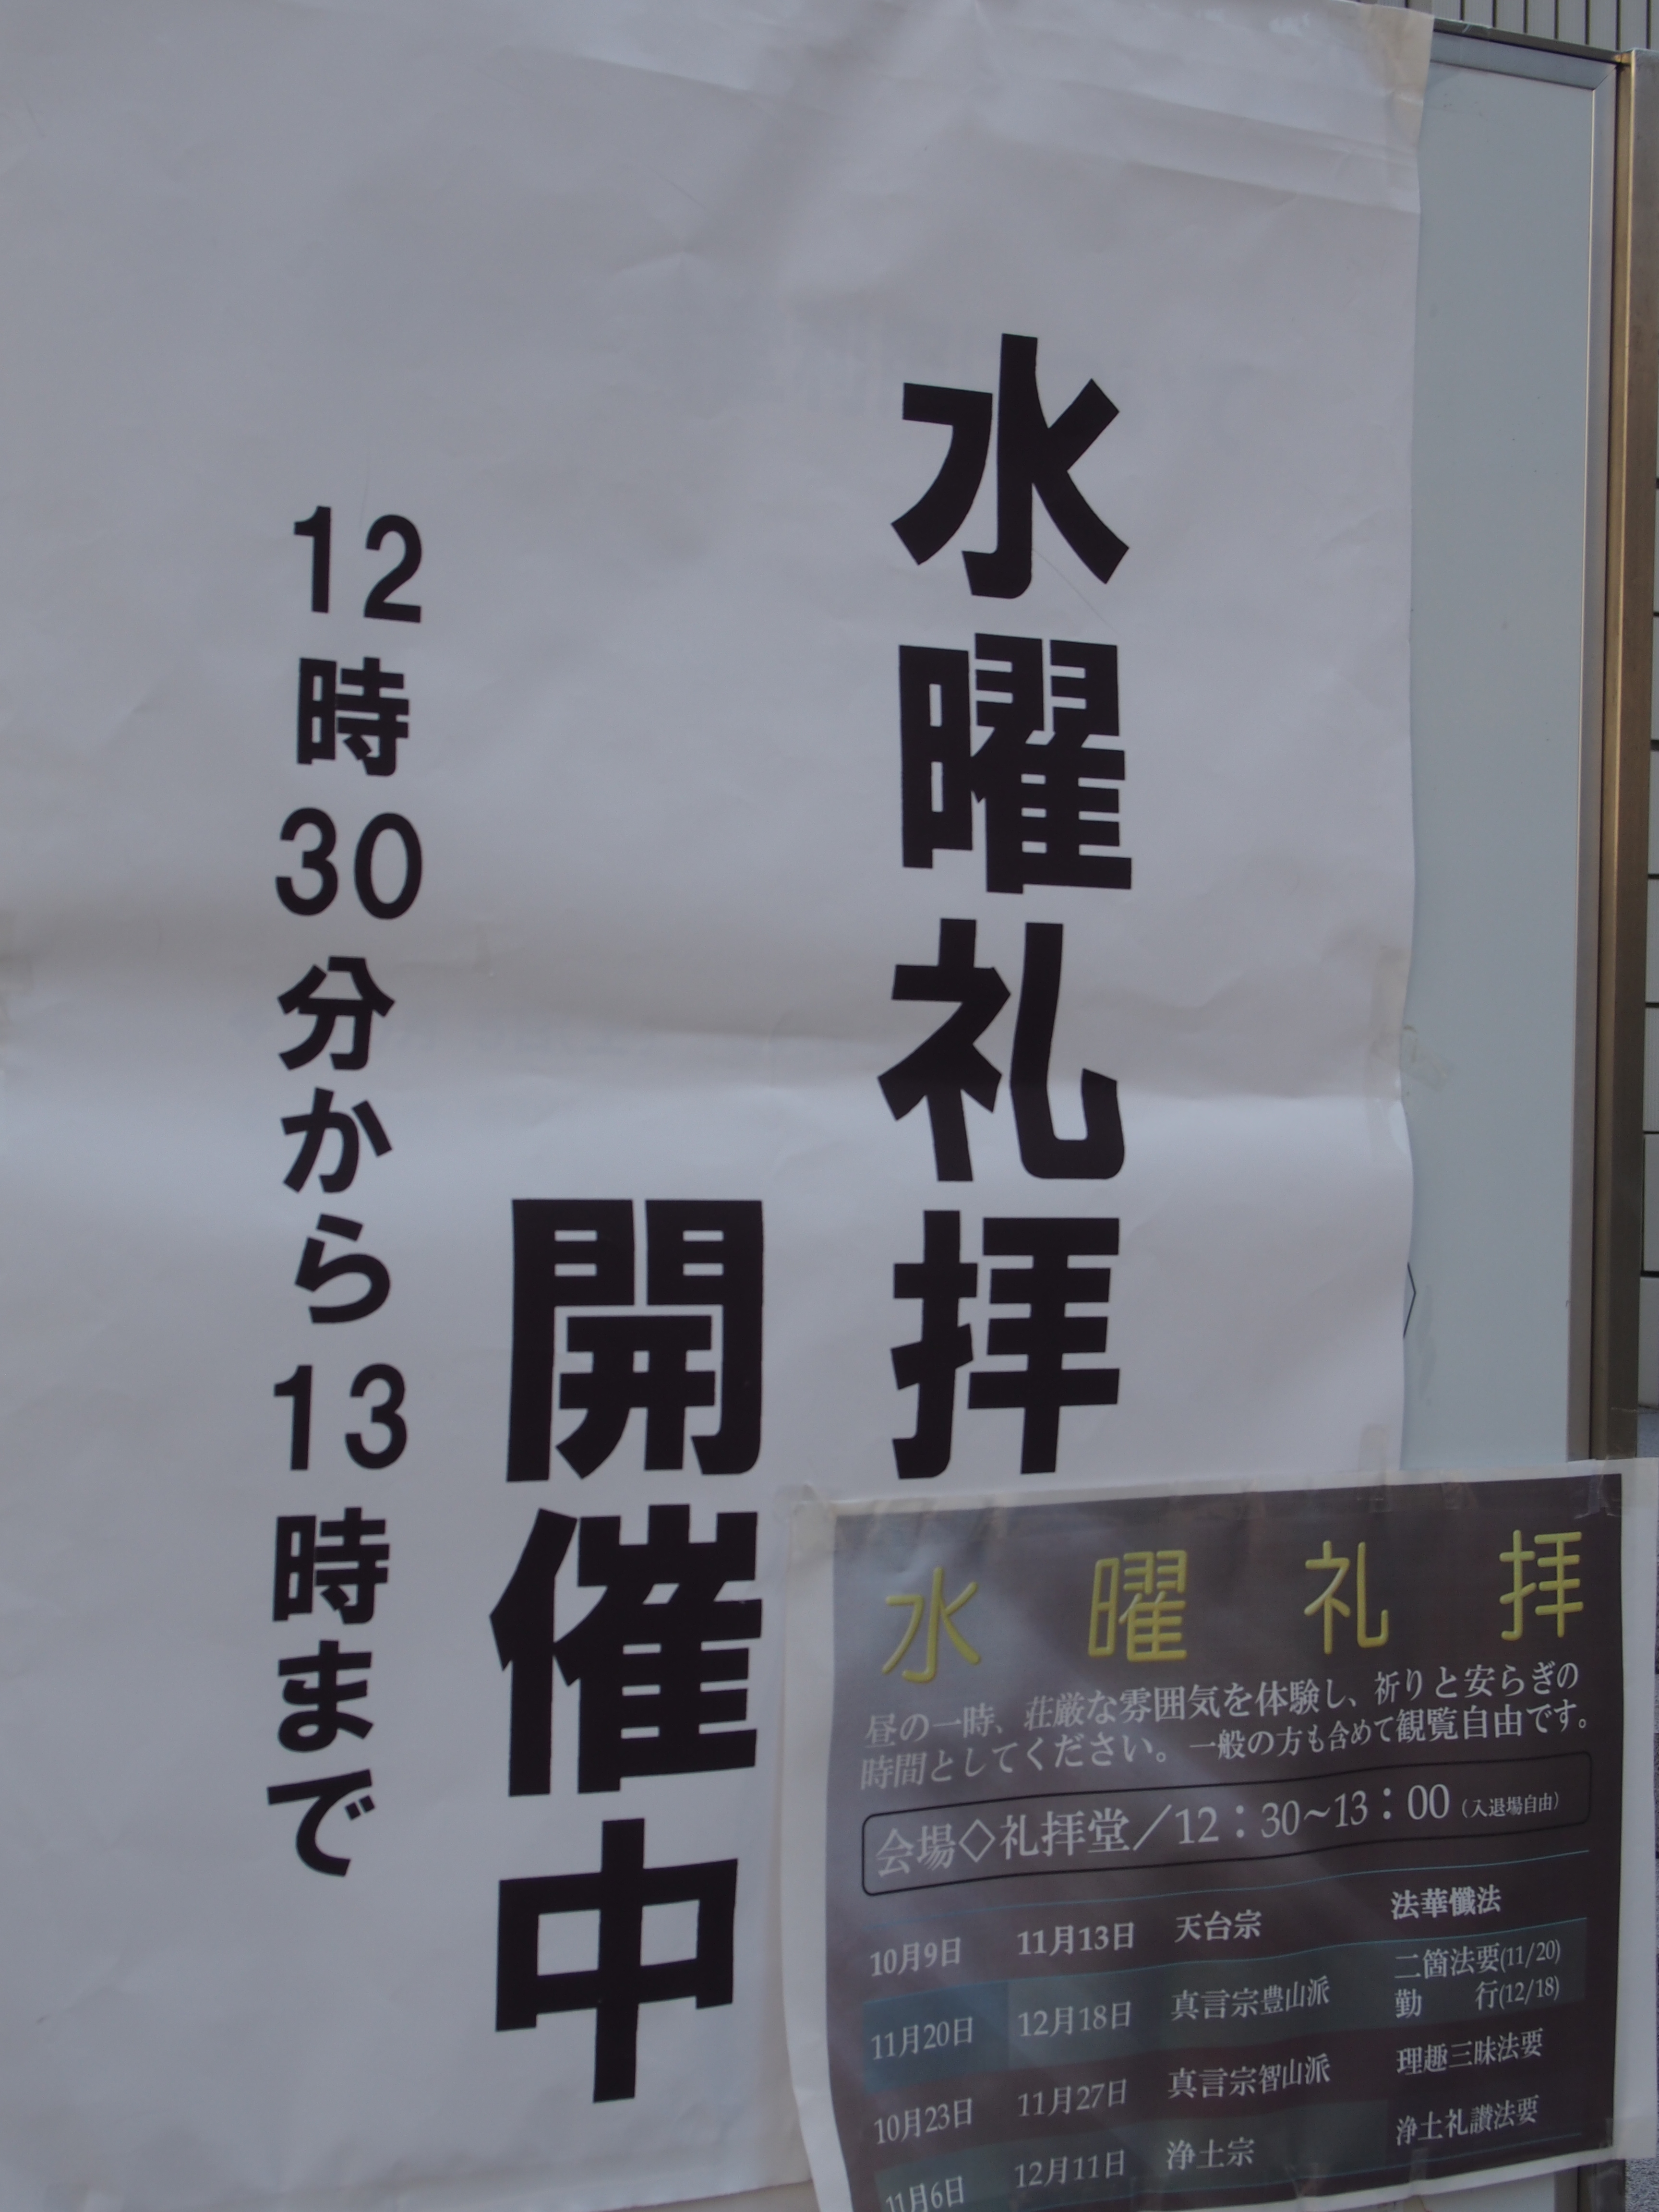 水曜礼拝
開催中
12時30分から13時まで
水曜礼拝
昼の一時、荘厳な雰囲気を体験し、祈りと安らぎの
時間としてください。一般の方も含めて観覧自由です。
会場◇礼拝堂／12：30~13：00（入退場自由）
10月9日 11月13日 天台宗 法華懺法
11月20日 12月18日 真言宗豊山派 二箇法要(11/20)
勤 行(12/18)
10月23日 11月27日 真言宗智山派 理趣三昧法要
11月6日 12月11日 浄土宗 浄土礼讃法要